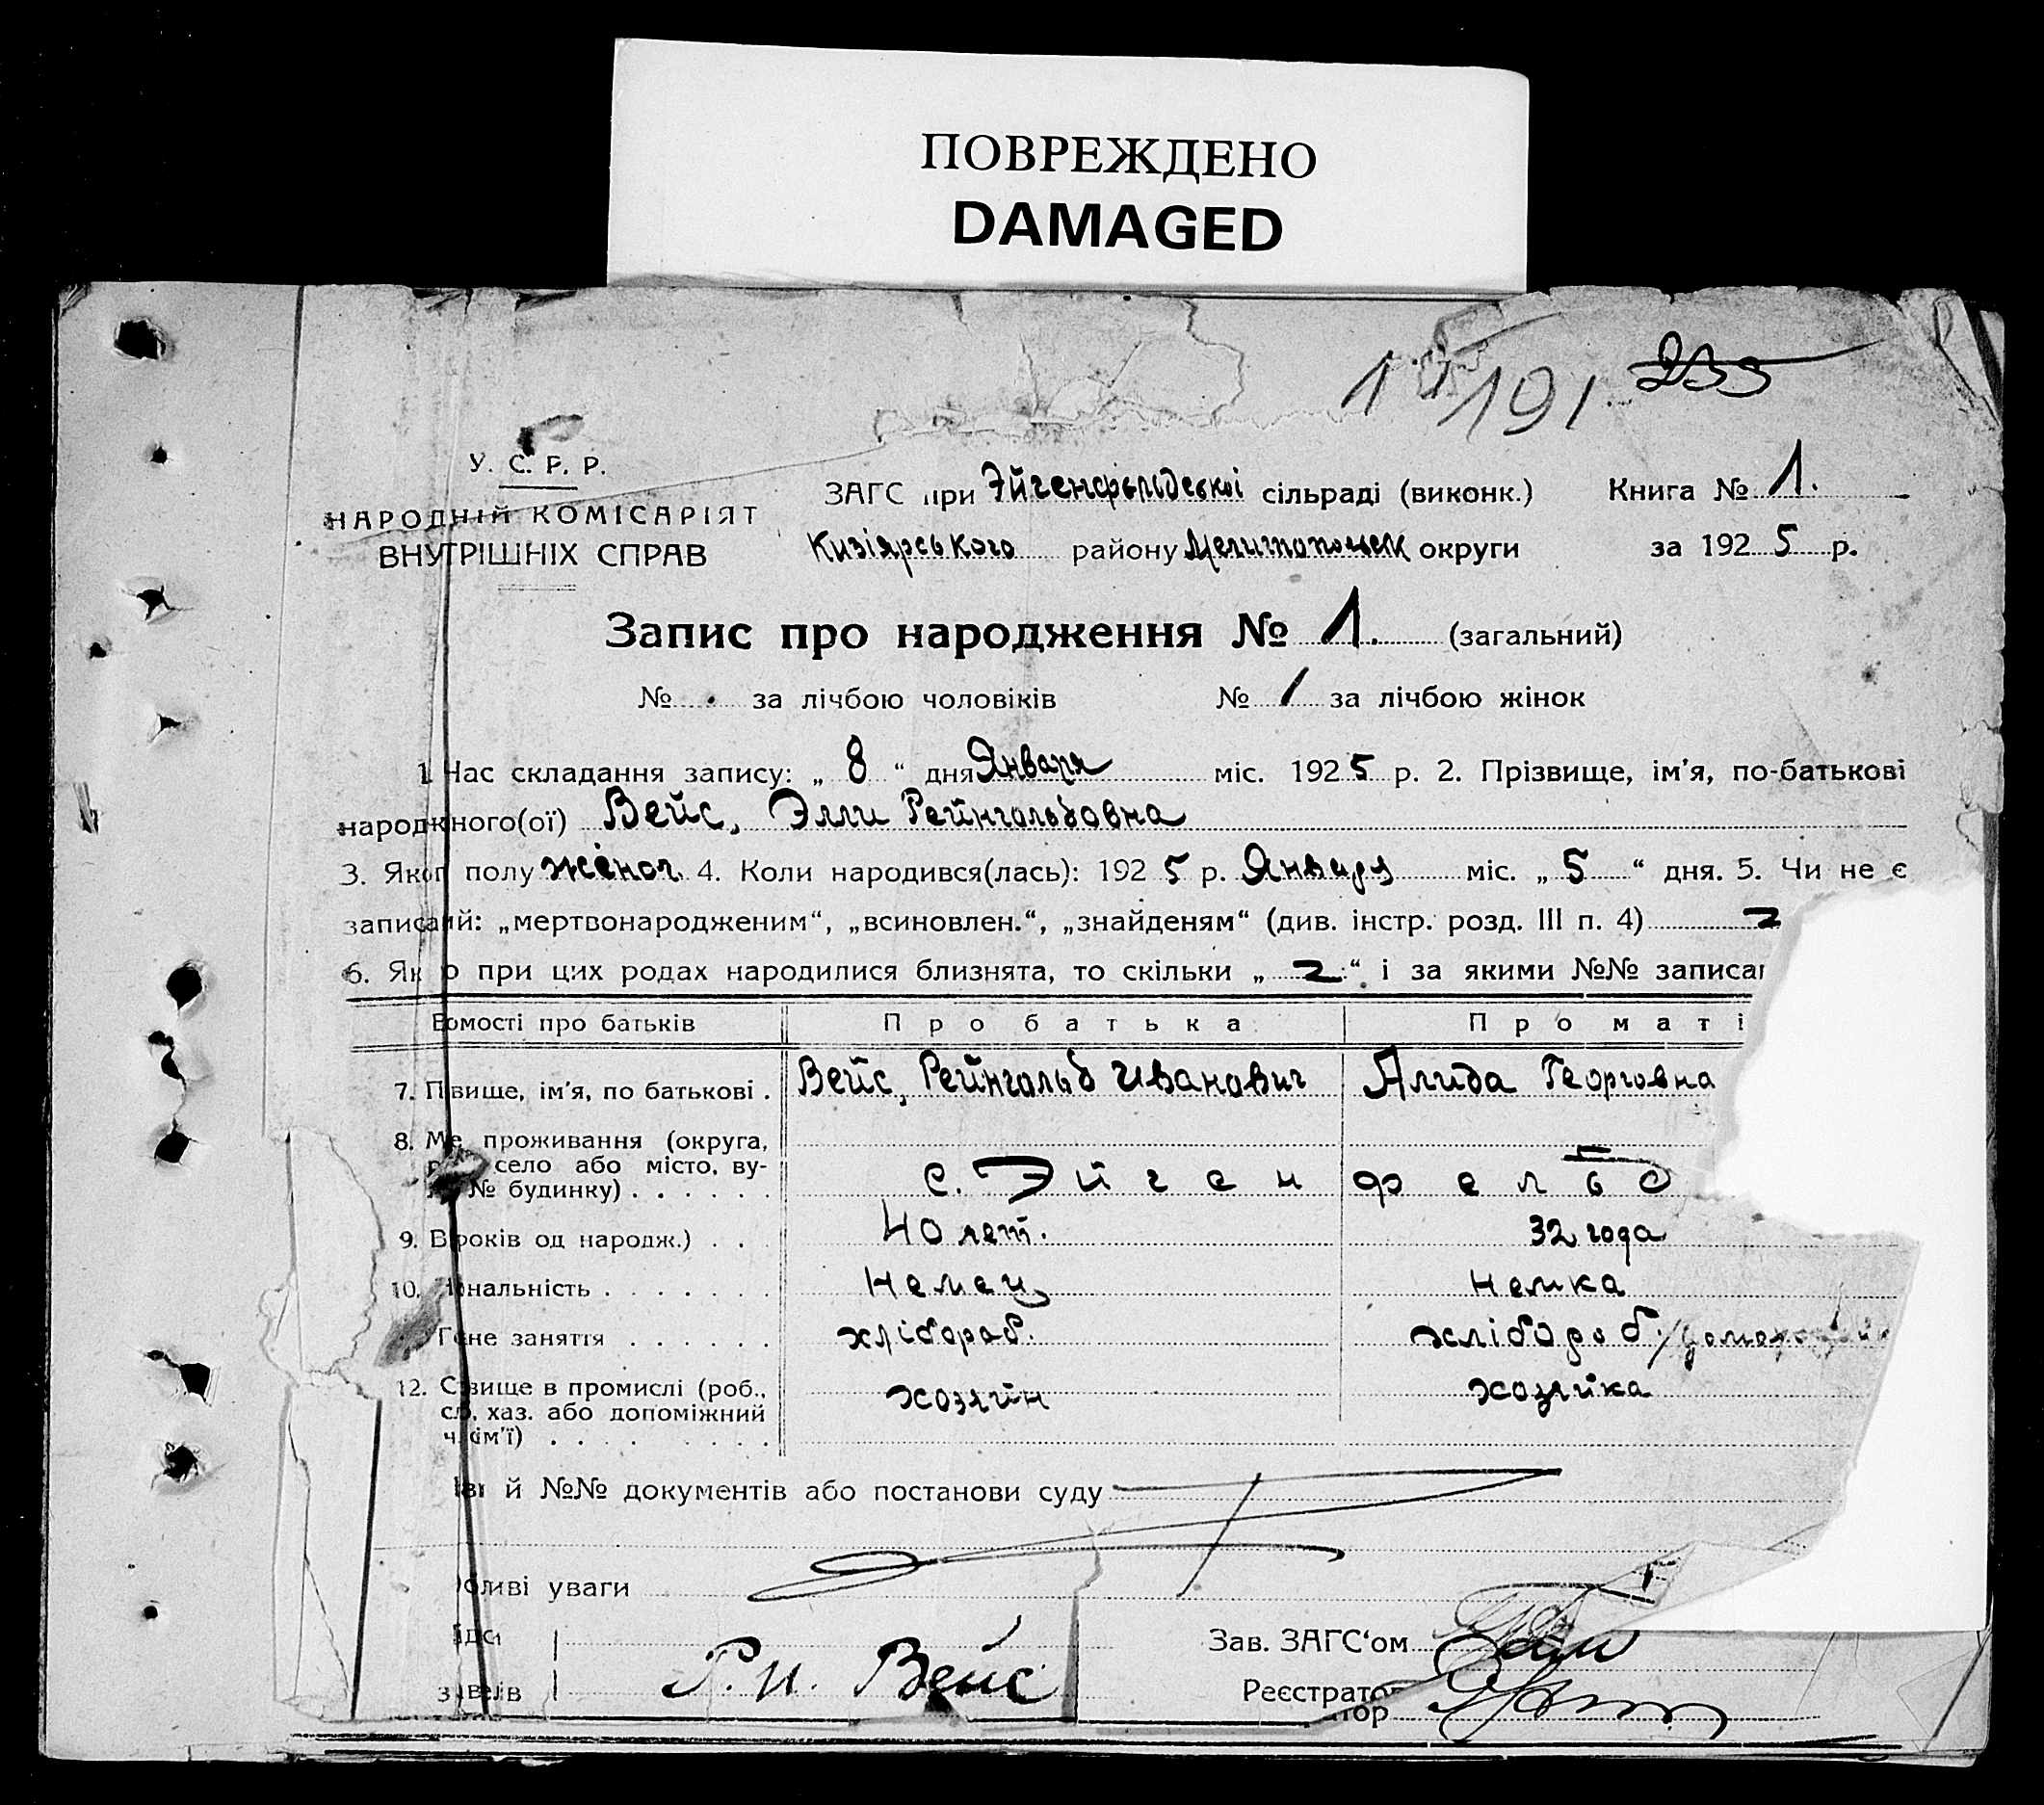 ПОВРЕЖДЕНО
DAMAGED
1 191 233
У. С. Р. Р.
НАРОДНІЙ КОМІСАРІЯТ
ВНУТРІШНІХ СПРАВ
ЗАГС при Эйгенфельдської сільраді (виконк.) Книга № 1.
Кизіярського району Мелитопольск округи за 1925 р.
Запис про народження № 1. (загальний)
№ . за лічбою чоловіків № 1 за лічбою жінок
1. Час складання запису: „ 8 “ дня Января міс. 1925 р. 2. Прізвище, ім'я, по-батькові
народженого(ої) Вейс, Элли Рейнгольдовна
3. Якого полу женск. 4. Коли народився(лась): 1925 р. Январу міс. „ 5 “ дня. 5. Чи не є
записаний: „мертвонародженим“, „всиновлен.“, „знайденям“ (див. інстр. розд. III п. 4)
6. Як о при цих родах народилися близнята, то скільки „ “ і за якими №№ записан
Відомості про батьків Про батька Про маті
7. П звище, ім'я, по батькові . Вейс, Рейнгольд Иванович Алида Георговна
8. Ме проживання (округа,
село або місто, ву-
№ будинку) . . . . . . с. Эйгенфельд
9. В (років од народж.) . . . 40 лет. 32 года
10. нальність . . . . . . . Немец немка
не заняття . . . . . . хлібороб. хлібороб.
12. С вище в промислі (роб.,
сл, хаз. або допоміжний
ч. сім'ї) . . . . . . . . хозяин хозяйка
й №№ документів або постанови суду
ливі уваги
Зав. ЗАГС'ом
Р. И. Вейс
Реєстратор
тор